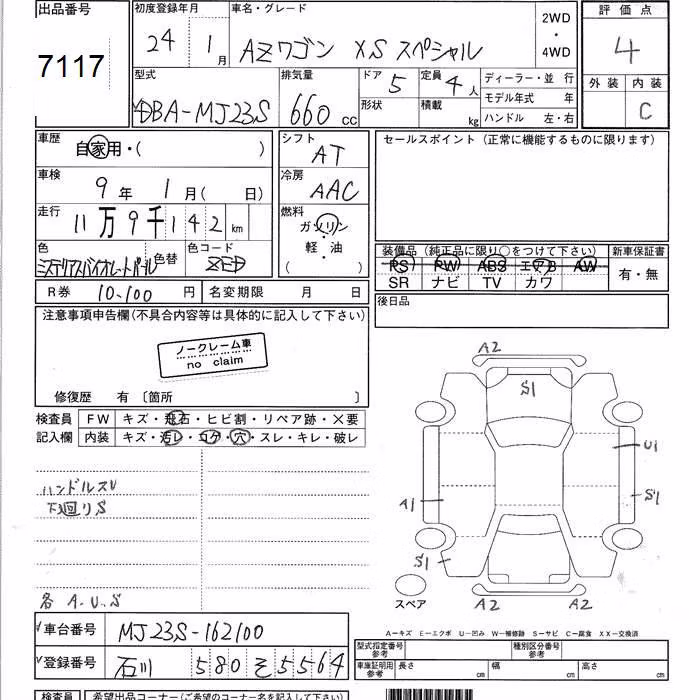 出品番号
7117
初度登録年月
24 1月
車名・グレード
AZワゴン XS スペシャル
2WD
・
4WD
評価点
4
外装 内装
C
型式
DBA-MJ23S
排気量
660 cc
ドア 5
形状
定員 4人
積載 kg
ディーラー・並行
モデル年式 年
ハンドル 左・右
車歴
自家用・( )
車検
9年 1月( 日)
走行
11万9千142 km
色
ミステリアスバイオレットパール
色替
色コード
ZED
シフト
AT
冷房
AAC
燃料
ガソリン
軽・油
( )
セールスポイント (正常に機能するものに限ります)
装備品 (純正品に限り○をつけて下さい)
PS PW ABS エアB AW
SR ナビ TV カワ
新車保証書
有・無
R券 10,100円
名変期限 月 日
後日品
注意事項申告欄(不具合内容等は具体的に記入して下さい)
ノークレーム車
no claim
修復歴 有 〔箇所 〕
検査員
記入欄
FW キズ・飛石・ヒビ割・リペア跡・×要
内装 キズ・汚レ・コゲ・穴・スレ・キレ・破レ
ハンドルスリ
下廻りS
各 A.U.S
A2
S1
U1
A1
S1
S1
A2 A2
スペア
A－キズ E－エクボ U－凹み W－補修跡 S－サビ C－腐食 XX－交換済
車台番号 MJ23S-162100
登録番号 石川 580 そ 5564
型式指定番号
参考
種別区分番号
参考
車庫証明用
参考
長さ cm 幅 cm 高さ cm
検査員
希望出品コーナー(ご希望のコーナー名を記入下さい)